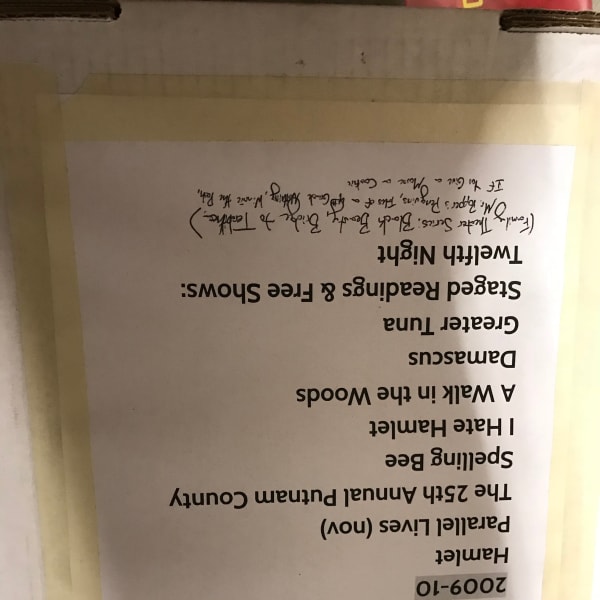 2009-10
Hamlet
Parallel Lives (nov)
The 25th Annual Putnam County
Spelling Bee
I Hate Hamlet
A Walk in the Woods
Damascus
Greater Tuna
Staged Readings & Free Shows:
Twelfth Night
(Family Theater Series: Black Beauty, Bridge to Terabithia,
Mr. Popper's Penguins, Tales of a 4th Grade Nothing, Winnie the Pooh,
If You Give a Mouse a Cookie